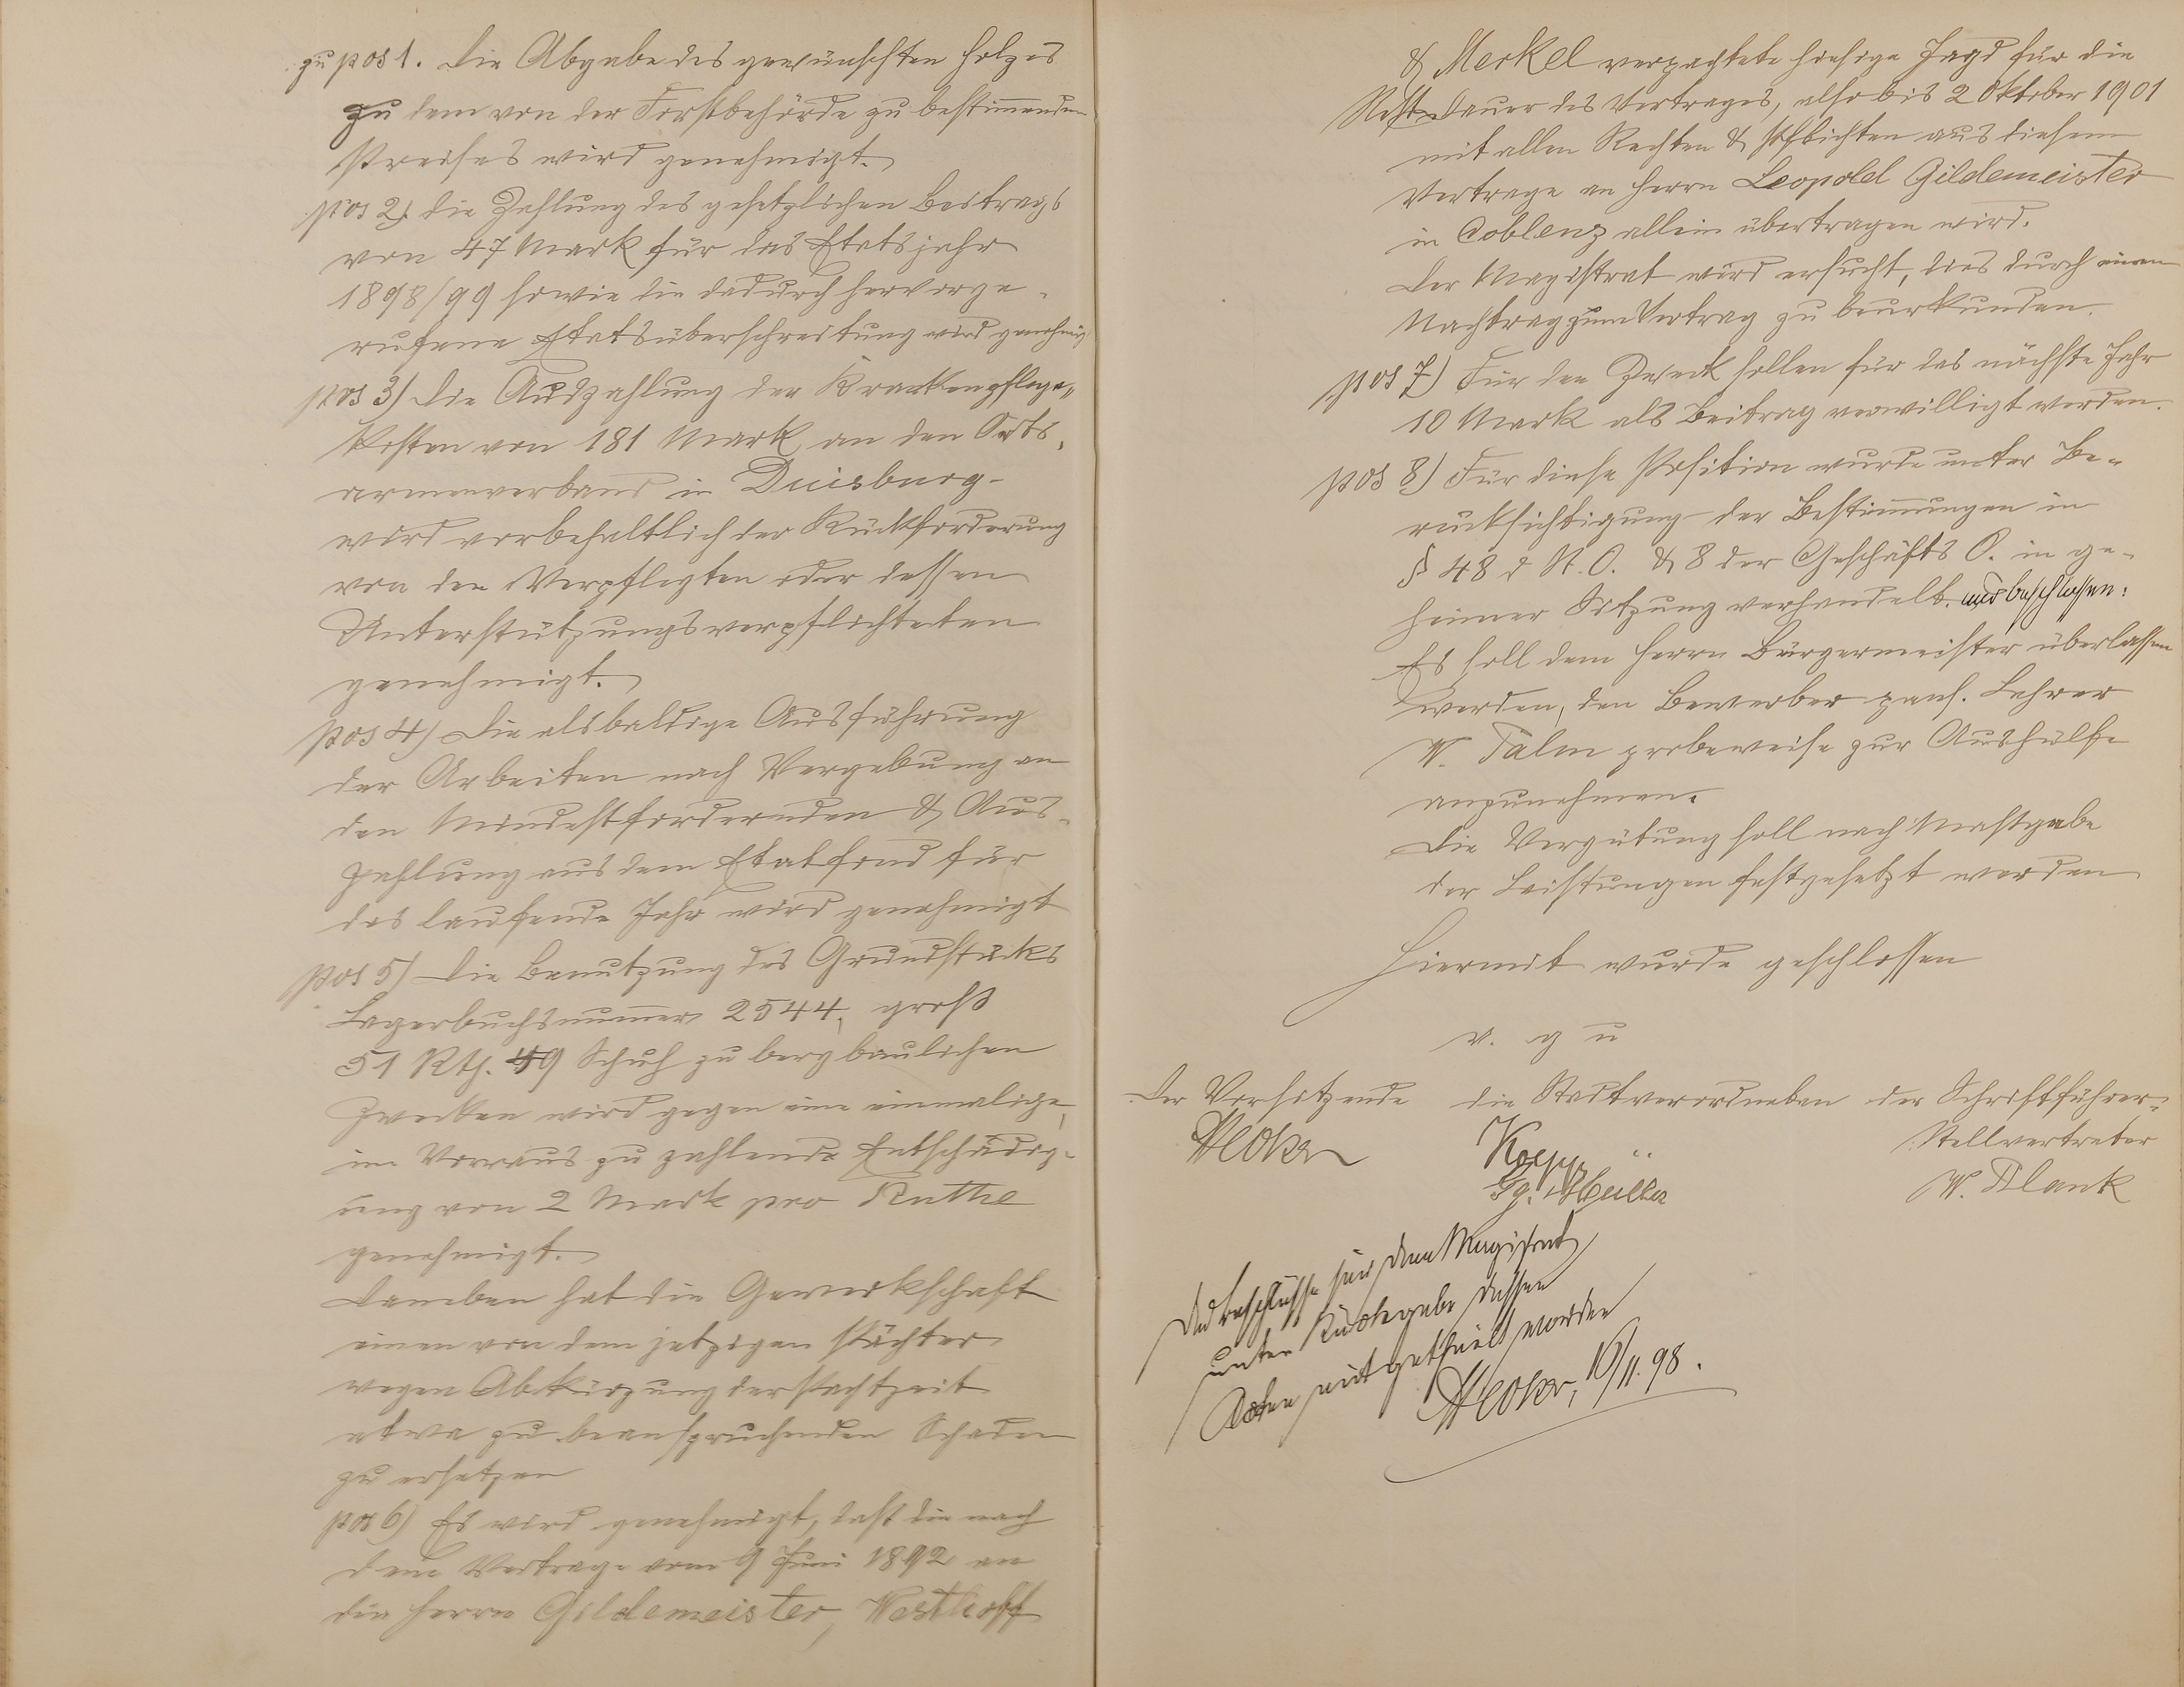 zu pos 1. Die Abgabe des gewünschten Holzes
zu dem von der Forstbehörde zu bestimmenden
Preises wird genehmigt.
pos 2) die Zahlung des gesetzlichen Beitrags
von 47 Mark für das Etatsjahr
1898/99 sowie die dadurch hervorge-
rufene Etatsüberschreitung wird genehmig
pos 3) Die Auszahlung der Krankenpflege-
kosten von 181 Mark an den Orts-
armenverband in Duisburg
wird vorbehaltlich der Rückforderung
von den Verpflegten oder dessen
Unterstützungsverpflichteten
genehmigt.
pos 4) Die alsbaldige Ausführung
der Arbeiten nach Vergebung an
den Mindestfordernden & Aus-
zahlung aus dem Etatfond für
das laufende Jahr wird genehmigt
pos 5) Die Benutzung des Grundstücks
Lagerbuchsnummer 2544, groß
51 Rth. 49 Schuh zu bergbaulichen
Zwecken wird gegen eine einmalige,
im Vorraus zu zahlende Entschädig-
ung von 2 Mark pro Ruthe
genehmigt.
Daneben hat die Gewerkschaft
einen von dem jetzigen Pächter
wegen Abkürzung der Pachtzeit
etwa zu beanspruchenden Schaden
zu ersetzen
pos 6) Es wird genehmigt, daß die nach
dem Vertrage vom 9 Juni 1892 an
die Herrn Gildemeister, Westhoff
& Merkel verpachtete hiesige Jagd für die
Rest Dauer des Vertrages, also bis 2 Oktober 1901
mit allen Rechten & Pflichten aus diesem
Vertrage an Herrn Leopold Gildemeister
in Coblenz allein übertragen wird.
Der Magistrat wird ersucht, dies durch einen
Nachtrag zum Vertrag zu beurkunden.
pos 7) Für den Zweck sollen für das nächste Jahr
10 Mark als Beitrag verwilligt werden.
pos 8) Für diese Position wurde unter Be-
rücksichtigung der Bestimmungen in
§ 48 d St. O. & 8 der Geschäfts O. in ge-
heimer Sitzung verhandelt. und beschlossen:
Es soll dem Herrn Bürgermeister überlassen
werden, den Bewerber pens. Lehrer
W. Palm probeweise zur Aushülfe
anzunehmen.
Die Vergütung soll nach Maßgabe
der Leistungen festgesetzt werden
Hiermit wurde geschlossen
v. g u
Der Vorsitzende die Stadtverordneten der Schriftführer-
Stellvertreter
Koepp
Gg. Müller
W. Blank
Die Beschlüsse sind dem Magistrat
unter Rückgabe dessen
Akten mitgetheilt worden
16/11. 98.